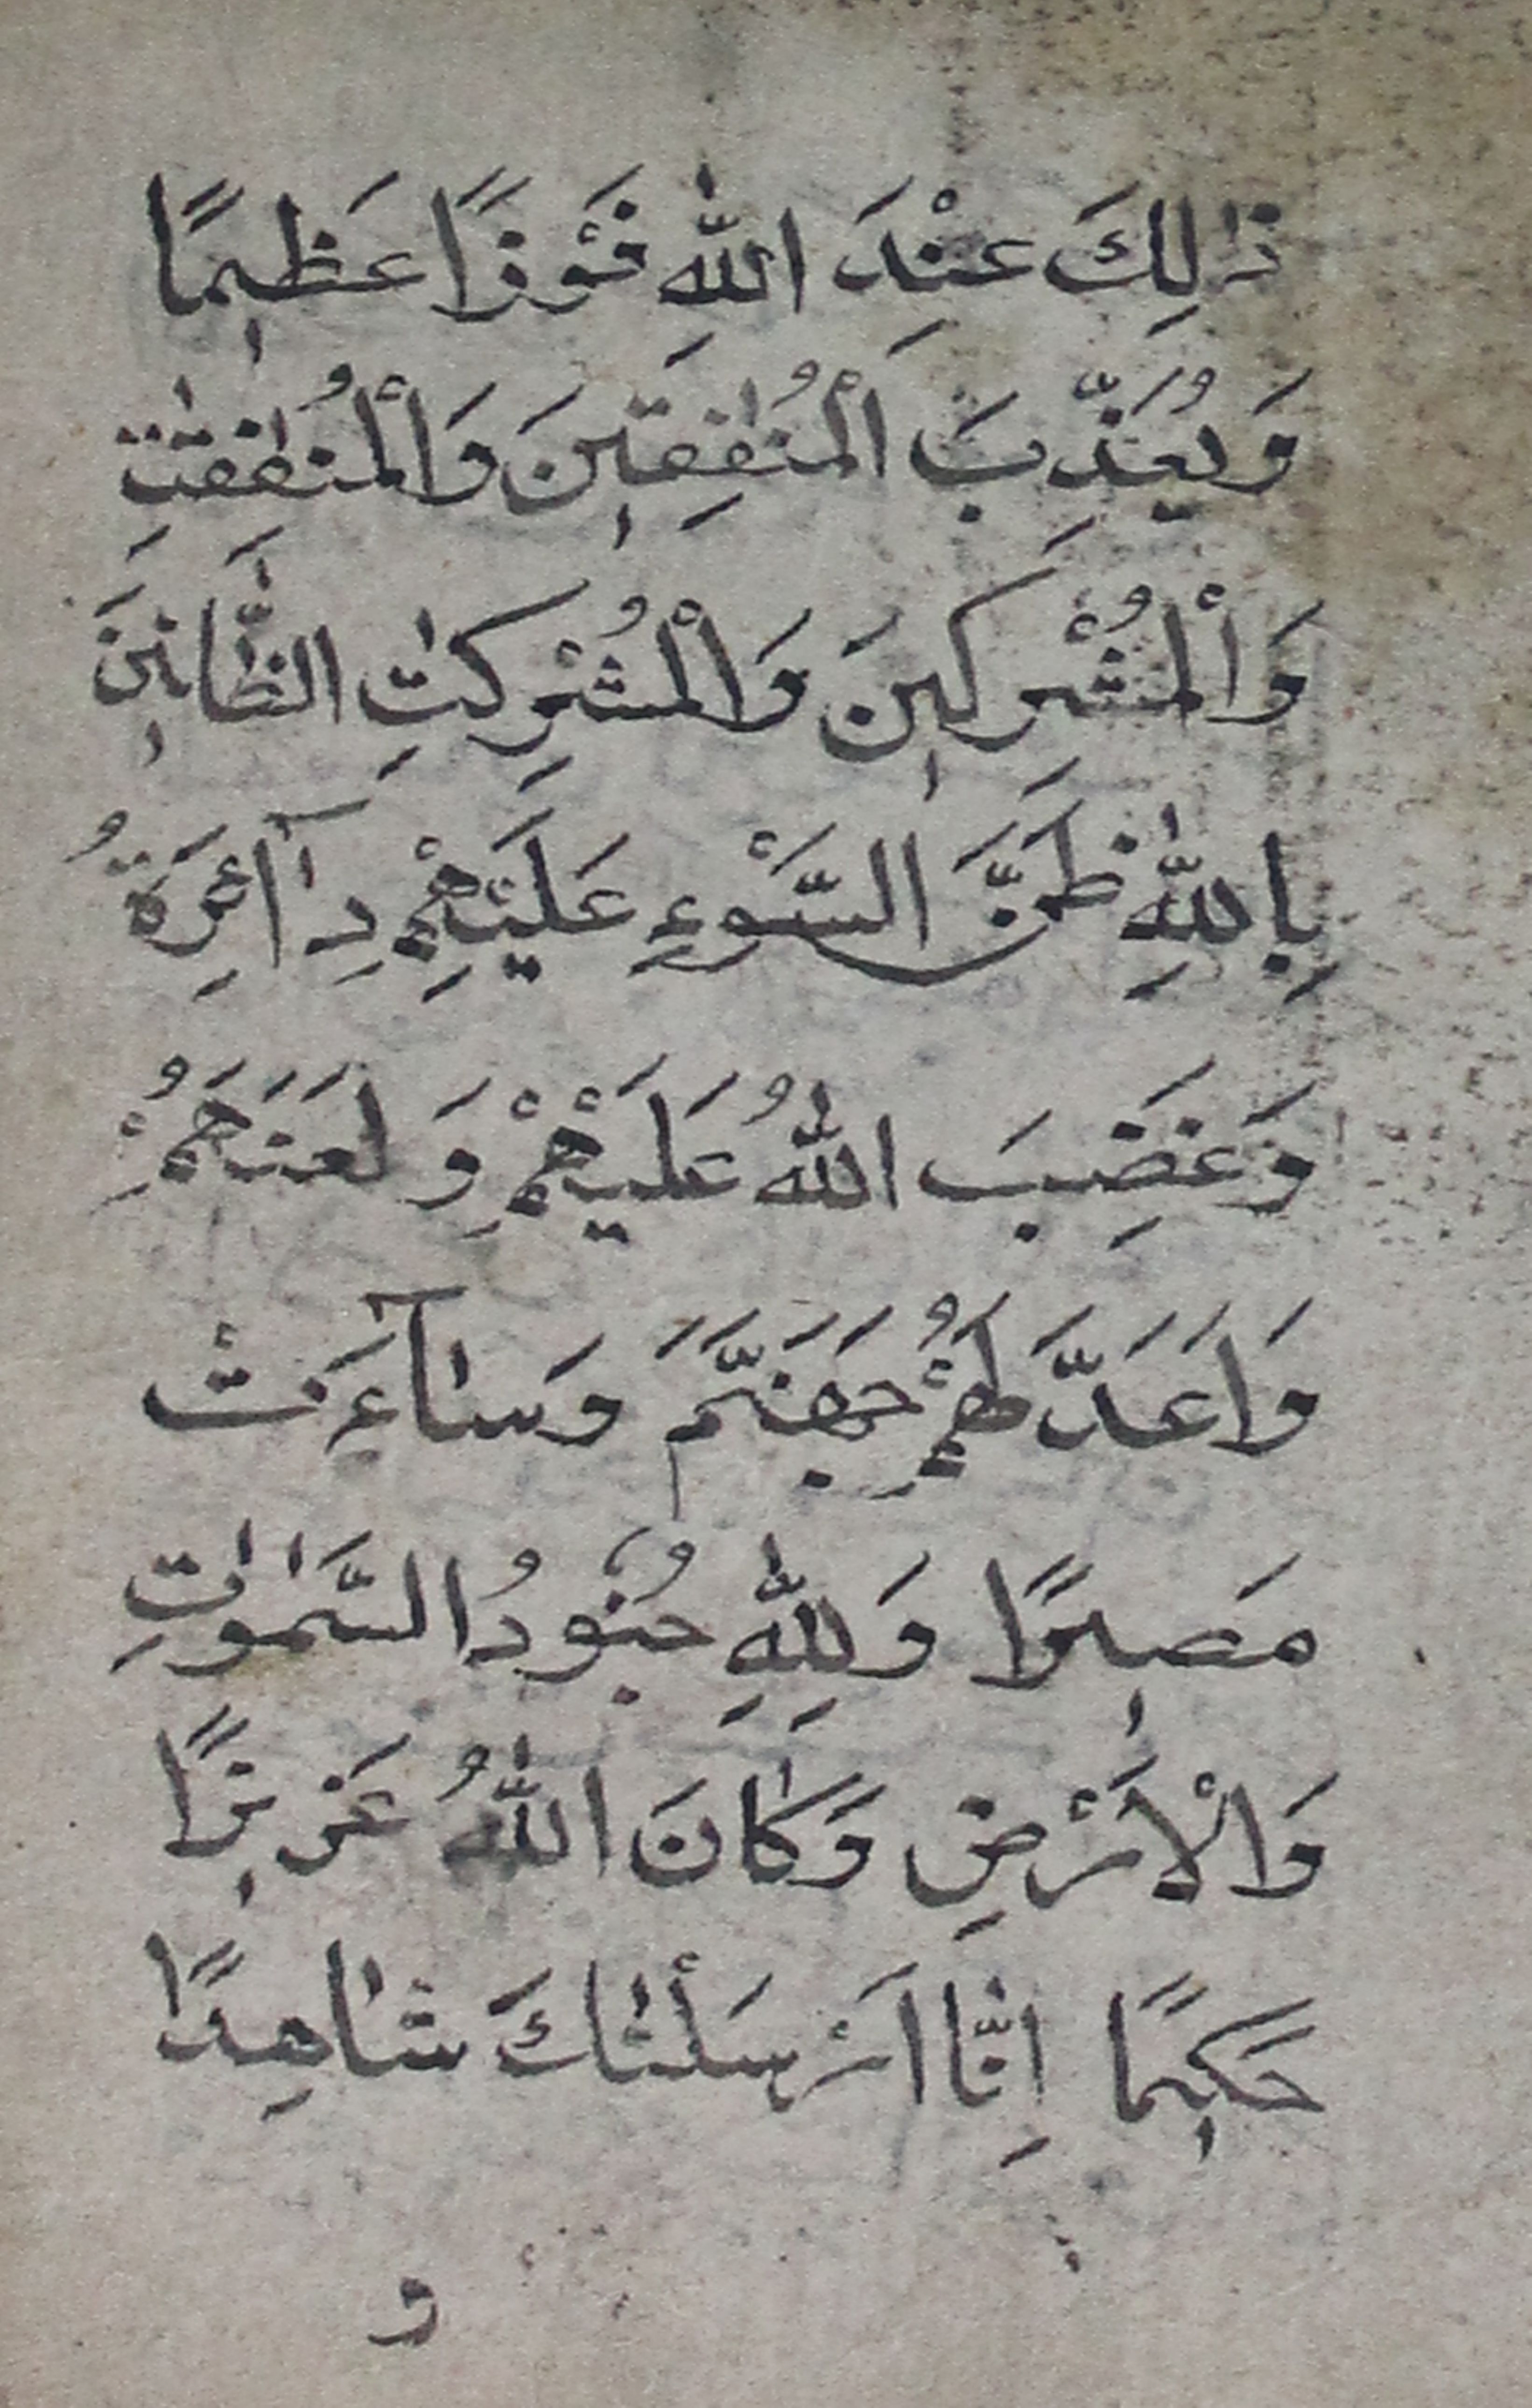 ذٰلِكَ عِنْدَ اللّٰهِ فَوْزًا عَظٖيمًا
وَيُعَذِّبَ الْمُنٰفِقٖينَ وَالْمُنٰفِقٰتِ
وَالْمُشْرِكٖينَ وَالْمُشْرِكٰتِ الظَّٓانّٖينَ
بِاللّٰهِ ظَنَّ السَّوْءِ عَلَيْهِمْ دَٓائِرَةُ
وَغَضِبَ اللّٰهُ عَلَيْهِمْ وَلَعَنَهُمْ
وَاَعَدَّ لَهُمْ جَهَنَّمَ وَسَٓاءَتْ
مَصٖيرًا وَلِلّٰهِ جُنُودُ السَّمٰوٰتِ
وَالْاَرْضِ وَكَانَ اللّٰهُ عَزٖيزًا
حَكٖيمًا اِنَّا اَرْسَلْنَاكَ شَاهِدًا
و